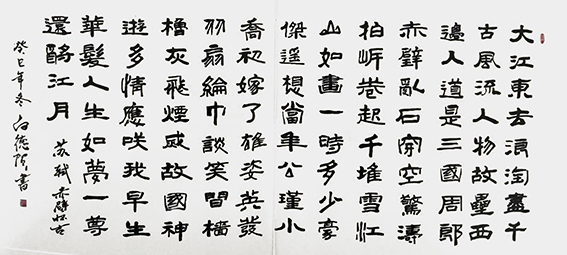 大江東去浪淘盡千
古風流人物故壘西
邊人道是三國周郎
赤壁亂石穿空驚濤
拍岸卷起千堆雪江
山如畫一時多少豪
傑遥想當年公瑾小
喬初嫁了雄姿英發
羽扇綸巾談笑間檣
櫓灰飛煙烕故國神
遊多情應咲我早生
華髮人生如夢一尊
還酹江月
蘇軾赤壁懷古
癸巳年冬白德書